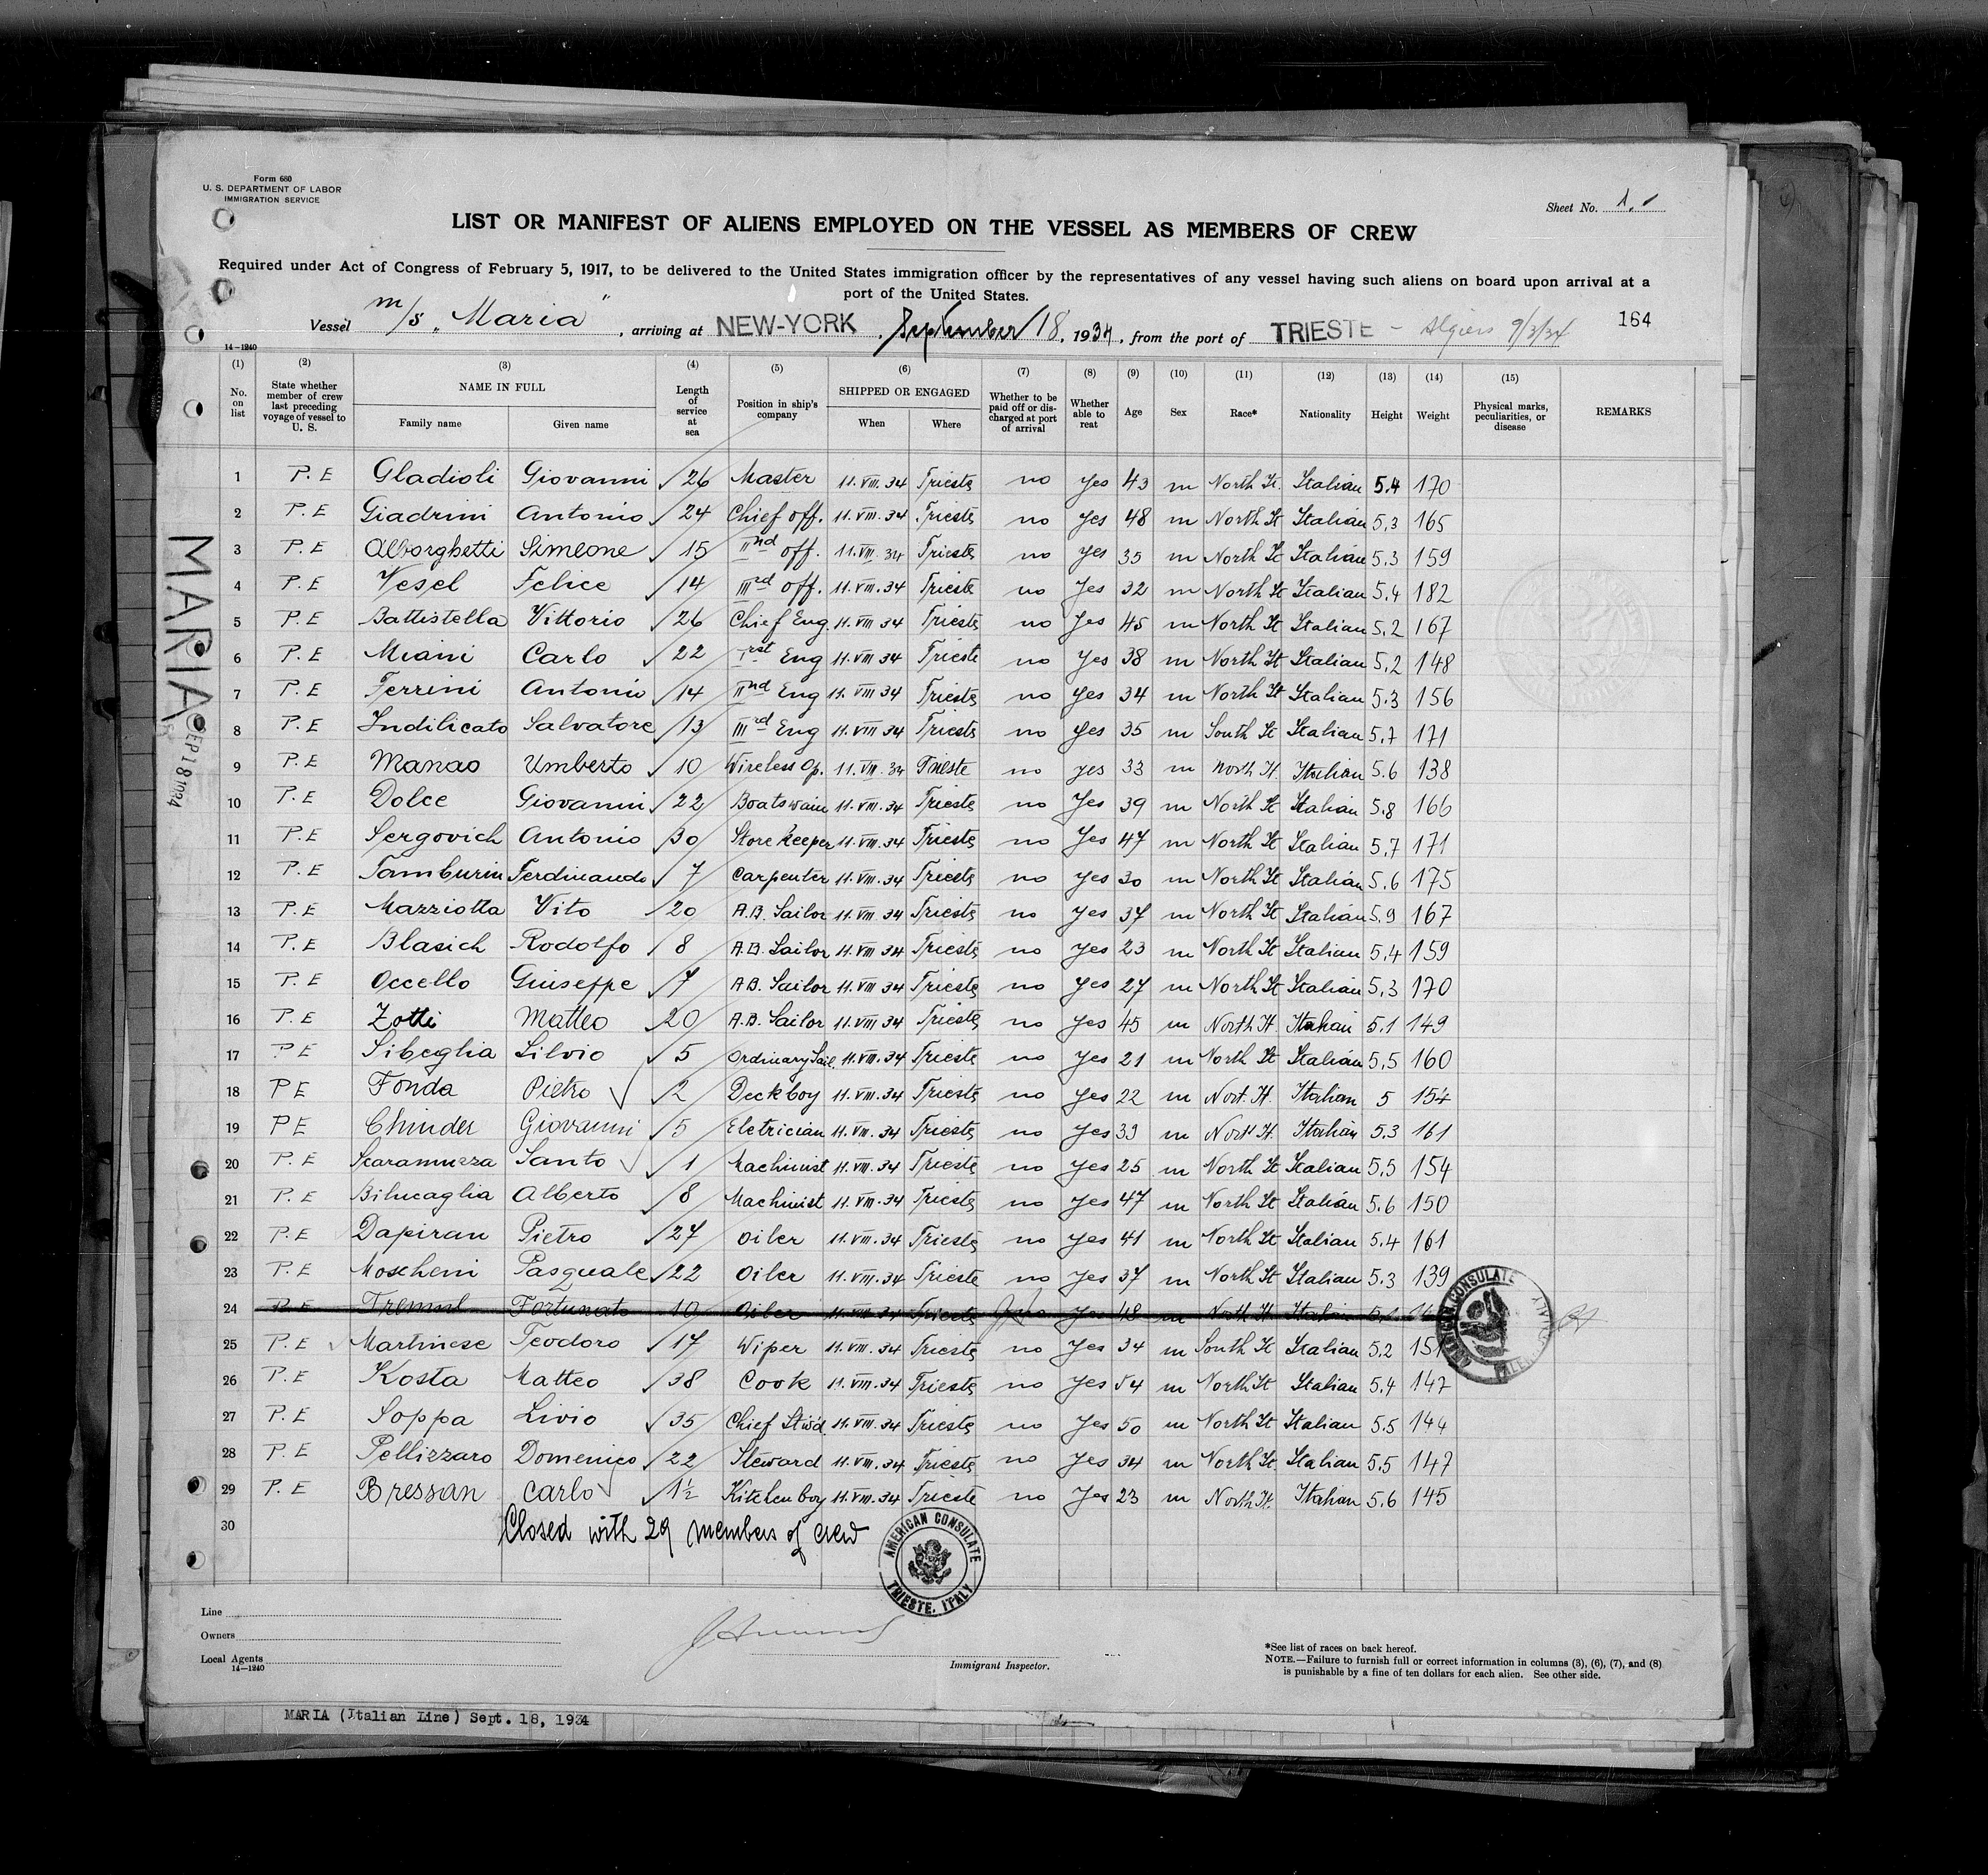 Form 680
U. S. DEPARTMENT OF LABOR
IMMIGRATION SERVICE
Sheet No.
LIST OR MANIFEST OF ALIENS EMPLOYED ON THE VESSEL AS MEMBERS OF CREW
Required under Act of Congress of February 5, 1917, to be delivered to the United States immigration officer by the representatives of any vessel having such aliens on board upon arrival at a
port of the United States.
Vessel m/s "Maria", arriving at NEW-YORK, September 18, 1934, from the port of TRIESTE - Algiers 9/3/34 164
14-1240
(1) (2) (3) (4) (5) (6) (7) (8) (9) (10) (11) (12) (13) (14) (15)
No. on list State whether member of crew last preceding voyage of vessel to U. S. NAME IN FULL Family name Given name Length of service at sea Position in ship's company SHIPPED OR ENGAGED When Where Whether to be paid off or discharged at port of arrival Whether able to read Age Sex Race* Nationality Height Weight Physical marks, peculiarities, or disease REMARKS
1 P.E Gladioli Giovanni 26 Master 11.VIII.34 Trieste no yes 43 m North It. Italian 5.4 170
2 P.E Giadrini Antonio 24 Chief off. 11.VIII.34 Trieste no yes 48 m North It Italian 5.3 165
3 P.E Alborghetti Simeone 15 IInd off. 11.VIII.34 Trieste no yes 35 m North It Italian 5.3 159
4 P.E Vesel Felice 14 IIIrd off. 11.VIII.34 Trieste no yes 32 m North It Italian 5.4 182
5 P.E Battistella Vittorio 26 Chief Eng. 11.VIII 34 Trieste no yes 45 m North It Italian 5.2 167
6 P.E Miani Carlo 22 Irst Eng 11.VIII 34 Trieste no yes 38 m North It Italian 5.2 148
7 P.E Ferrini Antonio 14 IInd Eng 11.VIII 34 Trieste no yes 34 m North It Italian 5.3 156
8 P.E Indilicato Salvatore 13 IIIrd Eng 11.VIII 34 Trieste no yes 35 m South It Italian 5.7 171
9 P.E Manao Umberto 10 Wireless Op. 11.VIII.34 Trieste no yes 33 m North It. Italian 5.6 138
10 P.E Dolce Giovanni 22 Boatswain 11.VIII.34 Trieste no yes 39 m North It Italian 5.8 166
11 P.E Sergovich Antonio 30 Store keeper 11.VIII.34 Trieste no yes 47 m North It Italian 5.7 171
12 P.E Tamburin Ferdinando 7 Carpenter 11.VIII.34 Trieste no yes 30 m North It Italian 5.6 175
13 P.E Mazziotta Vito 20 A.B. Sailor 11.VIII.34 Trieste no yes 37 m North It Italian 5.9 167
14 P.E Blasich Rodolfo 8 A.B. Sailor 11.VIII 34 Trieste no yes 23 m North It Italian 5.4 159
15 P.E Occello Giuseppe 7 A.B. Sailor 11.VIII.34 Trieste no yes 27 m North It Italian 5.3 170
16 P.E Zotti Matteo 20 A.B. Sailor 11.VIII 34 Trieste no yes 45 m North It. Italian 5.1 149
17 P E Sibeglia Silvio 5 Ordinary Sail. 11.VIII.34 Trieste no yes 21 m North It Italian 5.5 160
18 P E Fonda Pietro 2 Deck boy 11.VIII.34 Trieste no yes 22 m Nort. It. Italian 5 154
19 P E Chinder Giovanni 5 Eletrician 11.VIII.34 Trieste no yes 39 m North It. Italian 5.3 161
20 P.E Scaramuzza Santo 1 Machinist 11.VIII.34 Trieste no yes 25 m North It Italian 5.5 154
21 P.E Bilucaglia Alberto 8 Machinist 11.VIII.34 Trieste no yes 47 m North It Italian 5.6 150
22 P.E Dapiran Pietro 27 Oiler 11.VIII.34 Trieste no yes 41 m North It Italian 5.4 161
23 P.E Moscheni Pasquale 22 Oiler 11.VIII.34 Trieste no yes 37 m North It Italian 5.3 139
24 P.E Tremul Fortunato 10 Oiler 11.VIII.34 Trieste no yes 48 m North It. Italian
25 P.E Martinese Teodoro 17 Wiper 11.VIII.34 Trieste no yes 34 m South It Italian 5.2 151
26 P.E Kosta Matteo 38 Cook 11.VIII.34 Trieste no yes 54 m North It Italian 5.4 147
27 P.E Soppa Livio 35 Chief Stwd. 11.VIII.34 Trieste no yes 50 m North It Italian 5.5 144
28 P.E Pellizzaro Domenico 22 Steward 11.VIII.34 Trieste no yes 34 m North It. Italian 5.5 147
29 P.E Bressan Carlo 1½ Kitchen boy 11.VIII.34 Trieste no yes 23 m North It. Italian 5.6 145
30 Closed with 29 members of crew
MARIA
SEP 18 1934
AMERICAN CONSULATE
AMERICAN CONSULATE
TRIESTE, ITALY
Line
Owners
Local Agents
14-1240
Immigrant Inspector.
*See list of races on back hereof.
NOTE.—Failure to furnish full or correct information in columns (3), (6), (7), and (8)
is punishable by a fine of ten dollars for each alien. See other side.
MARIA (Italian Line) Sept. 18, 1934